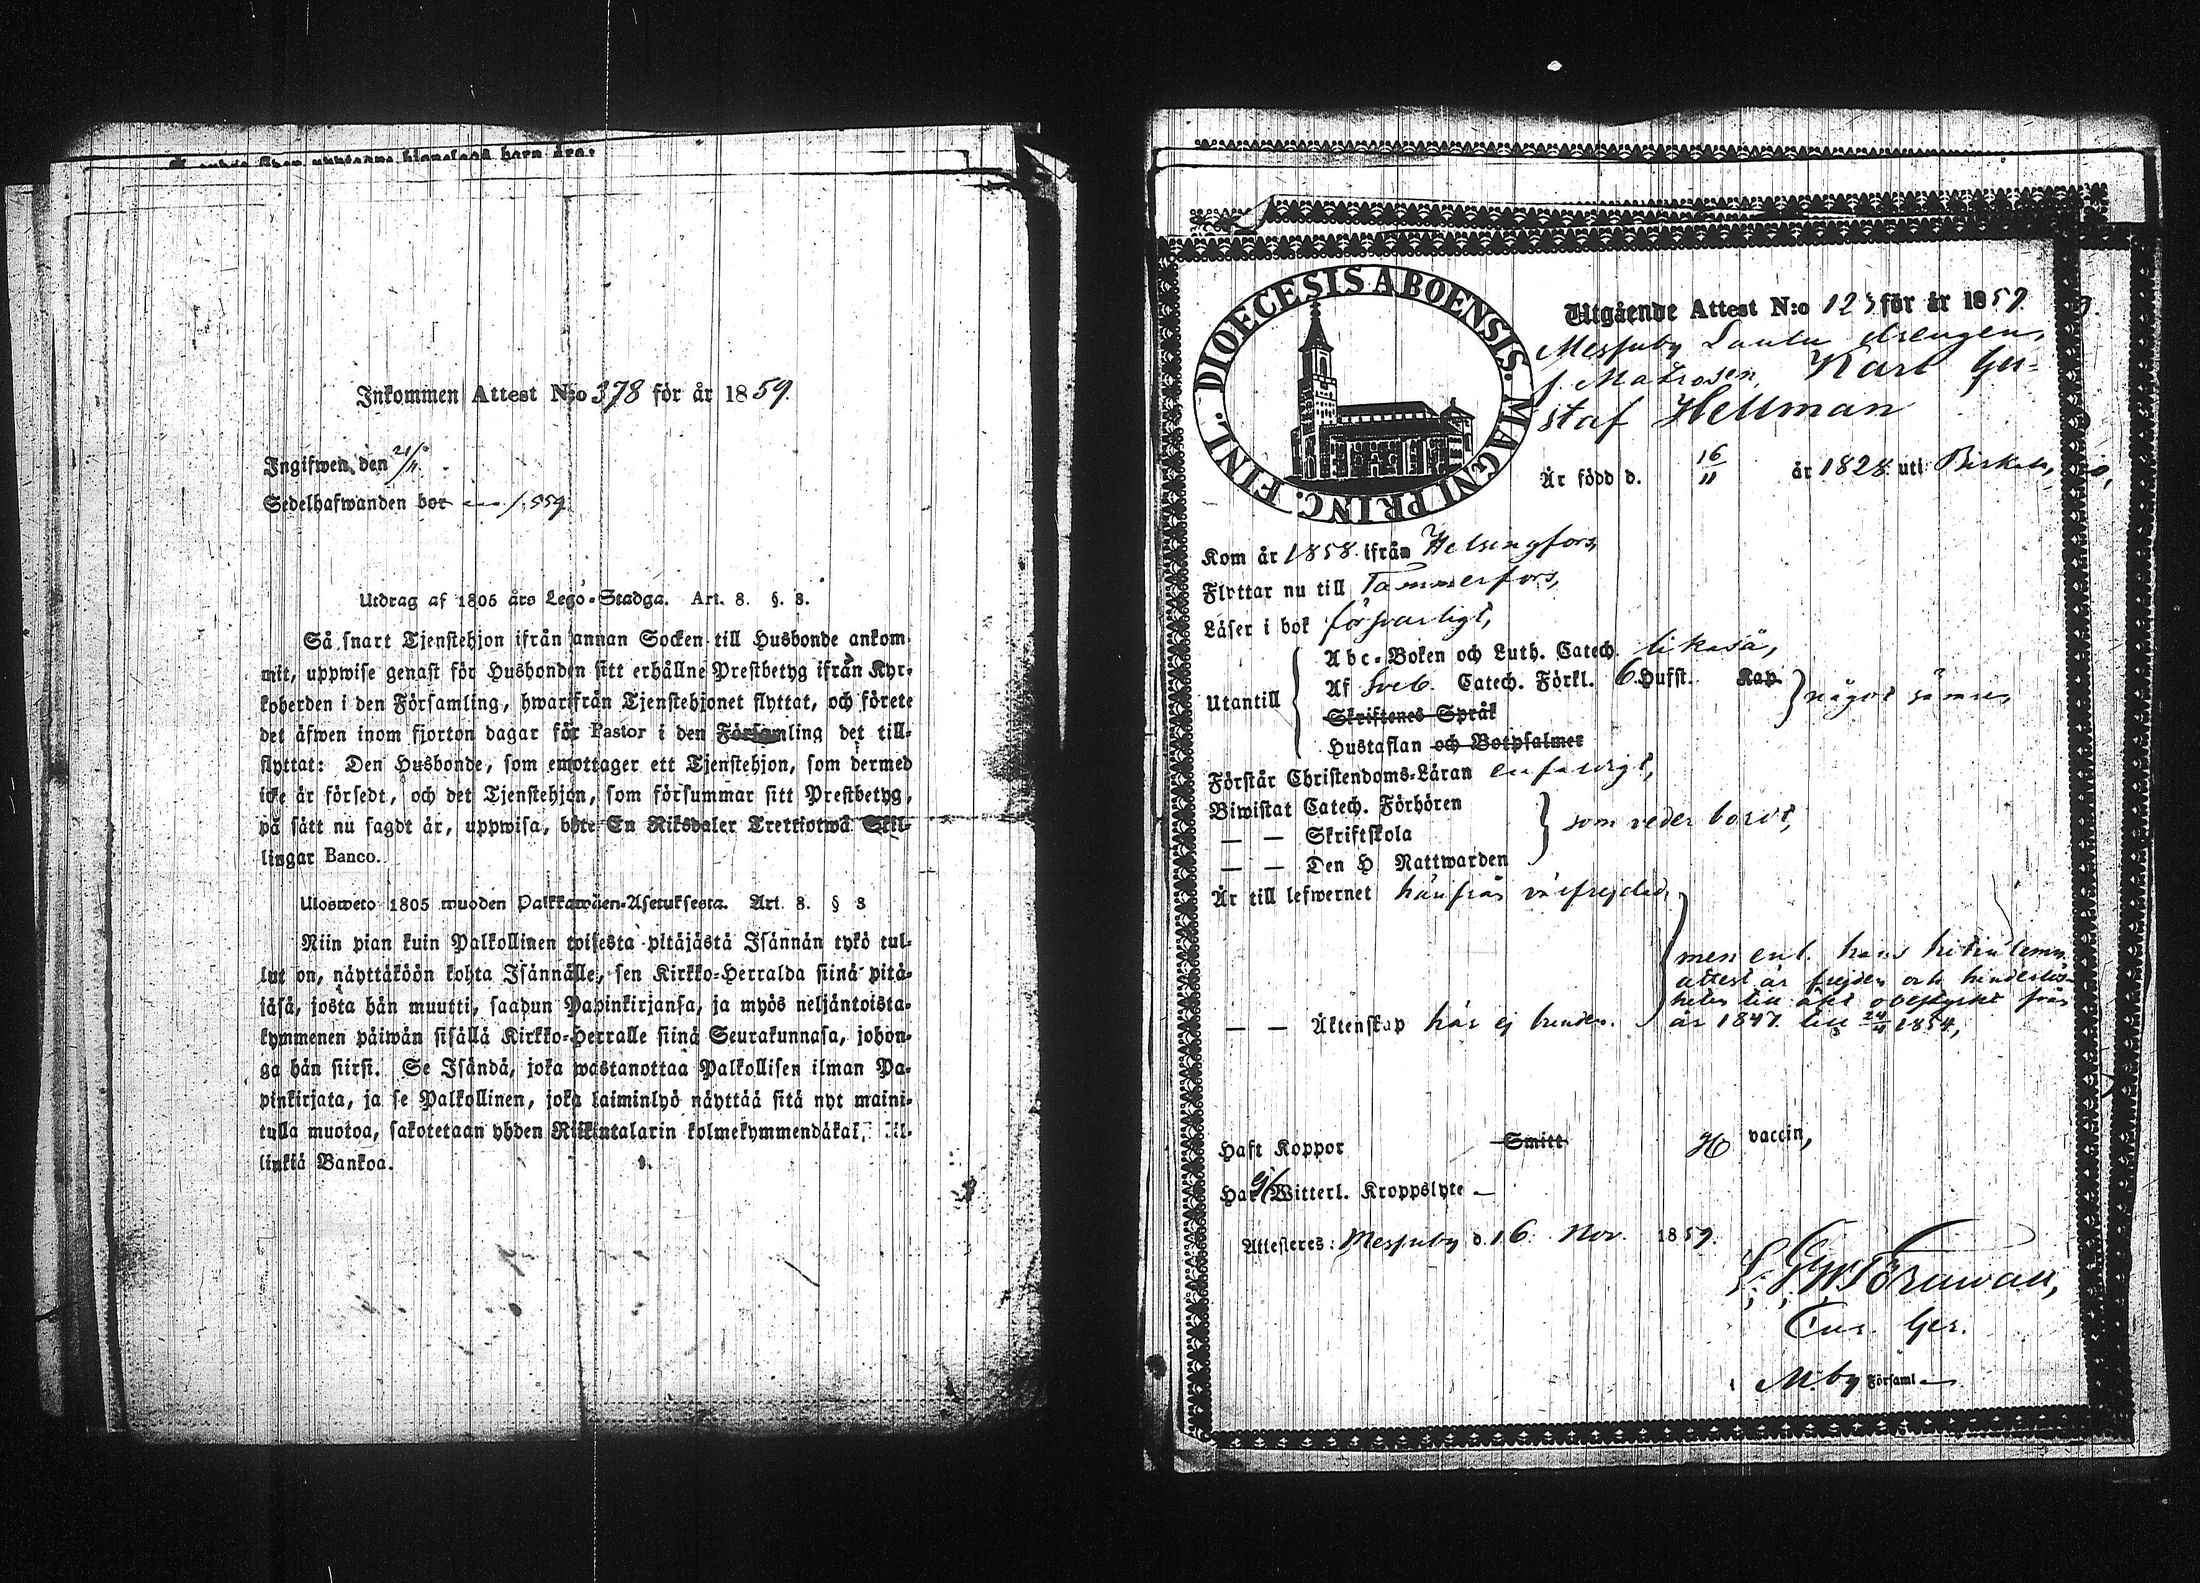 Inkommen Attest N:o 378 för år 1859.
Ingifwen den 21/11.
Sedelhafwanden bor 559.
Utdrag af 1805 års Lego-Stadga. Art. 8. §. 8.
Så snart Tjenstehjon ifrån annan Socken till Husbonde ankom-
mit, uppwise genast för Husbonden sitt erhållne Prestbetyg ifrån Kyr-
koherden i den Församling, hwarifrån Tjenstehjonet flyttat, och förete
det äfwen inom fjorton dagar för Pastor i den Församling det till-
flyttat: Den Husbonde, som emottager ett Tjenstehjon, som dermed
icke är försedt, och det Tjenstehjon, som försummar sitt Prestbetyg,
på sätt nu sagdt är, uppwisa, böte En Riksdaler Trettiotwå Skil-
lingar Banco.
Ulosweto 1805 wuoden Palkkawäen-Asetuksesta. Art. 8. § 8
Niin pian kuin Palkollinen toisesta pitäjästä Isännän tykö tul-
lut on, näyttäköön kohta Isännälle, sen Kirkko-Herralda siinä pitä-
jäsä, josta hän muutti, saadun Papinkirjansa, ja myös neljäntoista-
kymmenen päiwän sisällä Kirkko-Herralle siinä Seurakunnasa, johon-
ga hän siirsi. Se Isändä, joka wastanottaa Palkollisen ilman Pa-
pinkirjata, ja se Palkollinen, joka laiminlyö näyttää sitä nyt maini-
tulla muotoa, sakotetaan yhden Riikintalarin kolmekymmendäkaksi kil-
linkiä Bankoa.
DIOECESIS ABOENSIS. MAGNI PRINC. FINL.
Utgående Attest N:o 123 för år 1859.
Messuby Drengen,
f. Matrosen, Karl Gu-
staf Hellman
Är född d. 16/11 år 1828 uti Birkala,
Kom år 1858 ifrån Helsingfors,
Flyttar nu till Tammerfors,
Läser i bok försvarligt,
Utantill
Abc-Boken och Luth. Catech. likaså,
Af Sveb. Catech. Förkl. 6. Hufst. Kap. något sämre,
Skriftenes Språk
Hustaflan och Botpsalmer
Förstår Christendoms-Läran enfaldigt,
Biwistat Catech. Förhören
— — Skriftskola som vederbordt,
— — Den H. Nattwarden
Är till lefwernet härifrån välfrejdad,
men enl. hans hitkomna
attest är frejden och hinderlös-
heten till äkt. obestyrkt från
— — Äktenskap här ej bunden. år 1847 till 24/4 1854,
Haft Koppor Smitt H vaccin,
Har ej Witterl. Kroppslyte —
Attesteras: Messuby d. 16 Nov. 1859.
M.by Församl —